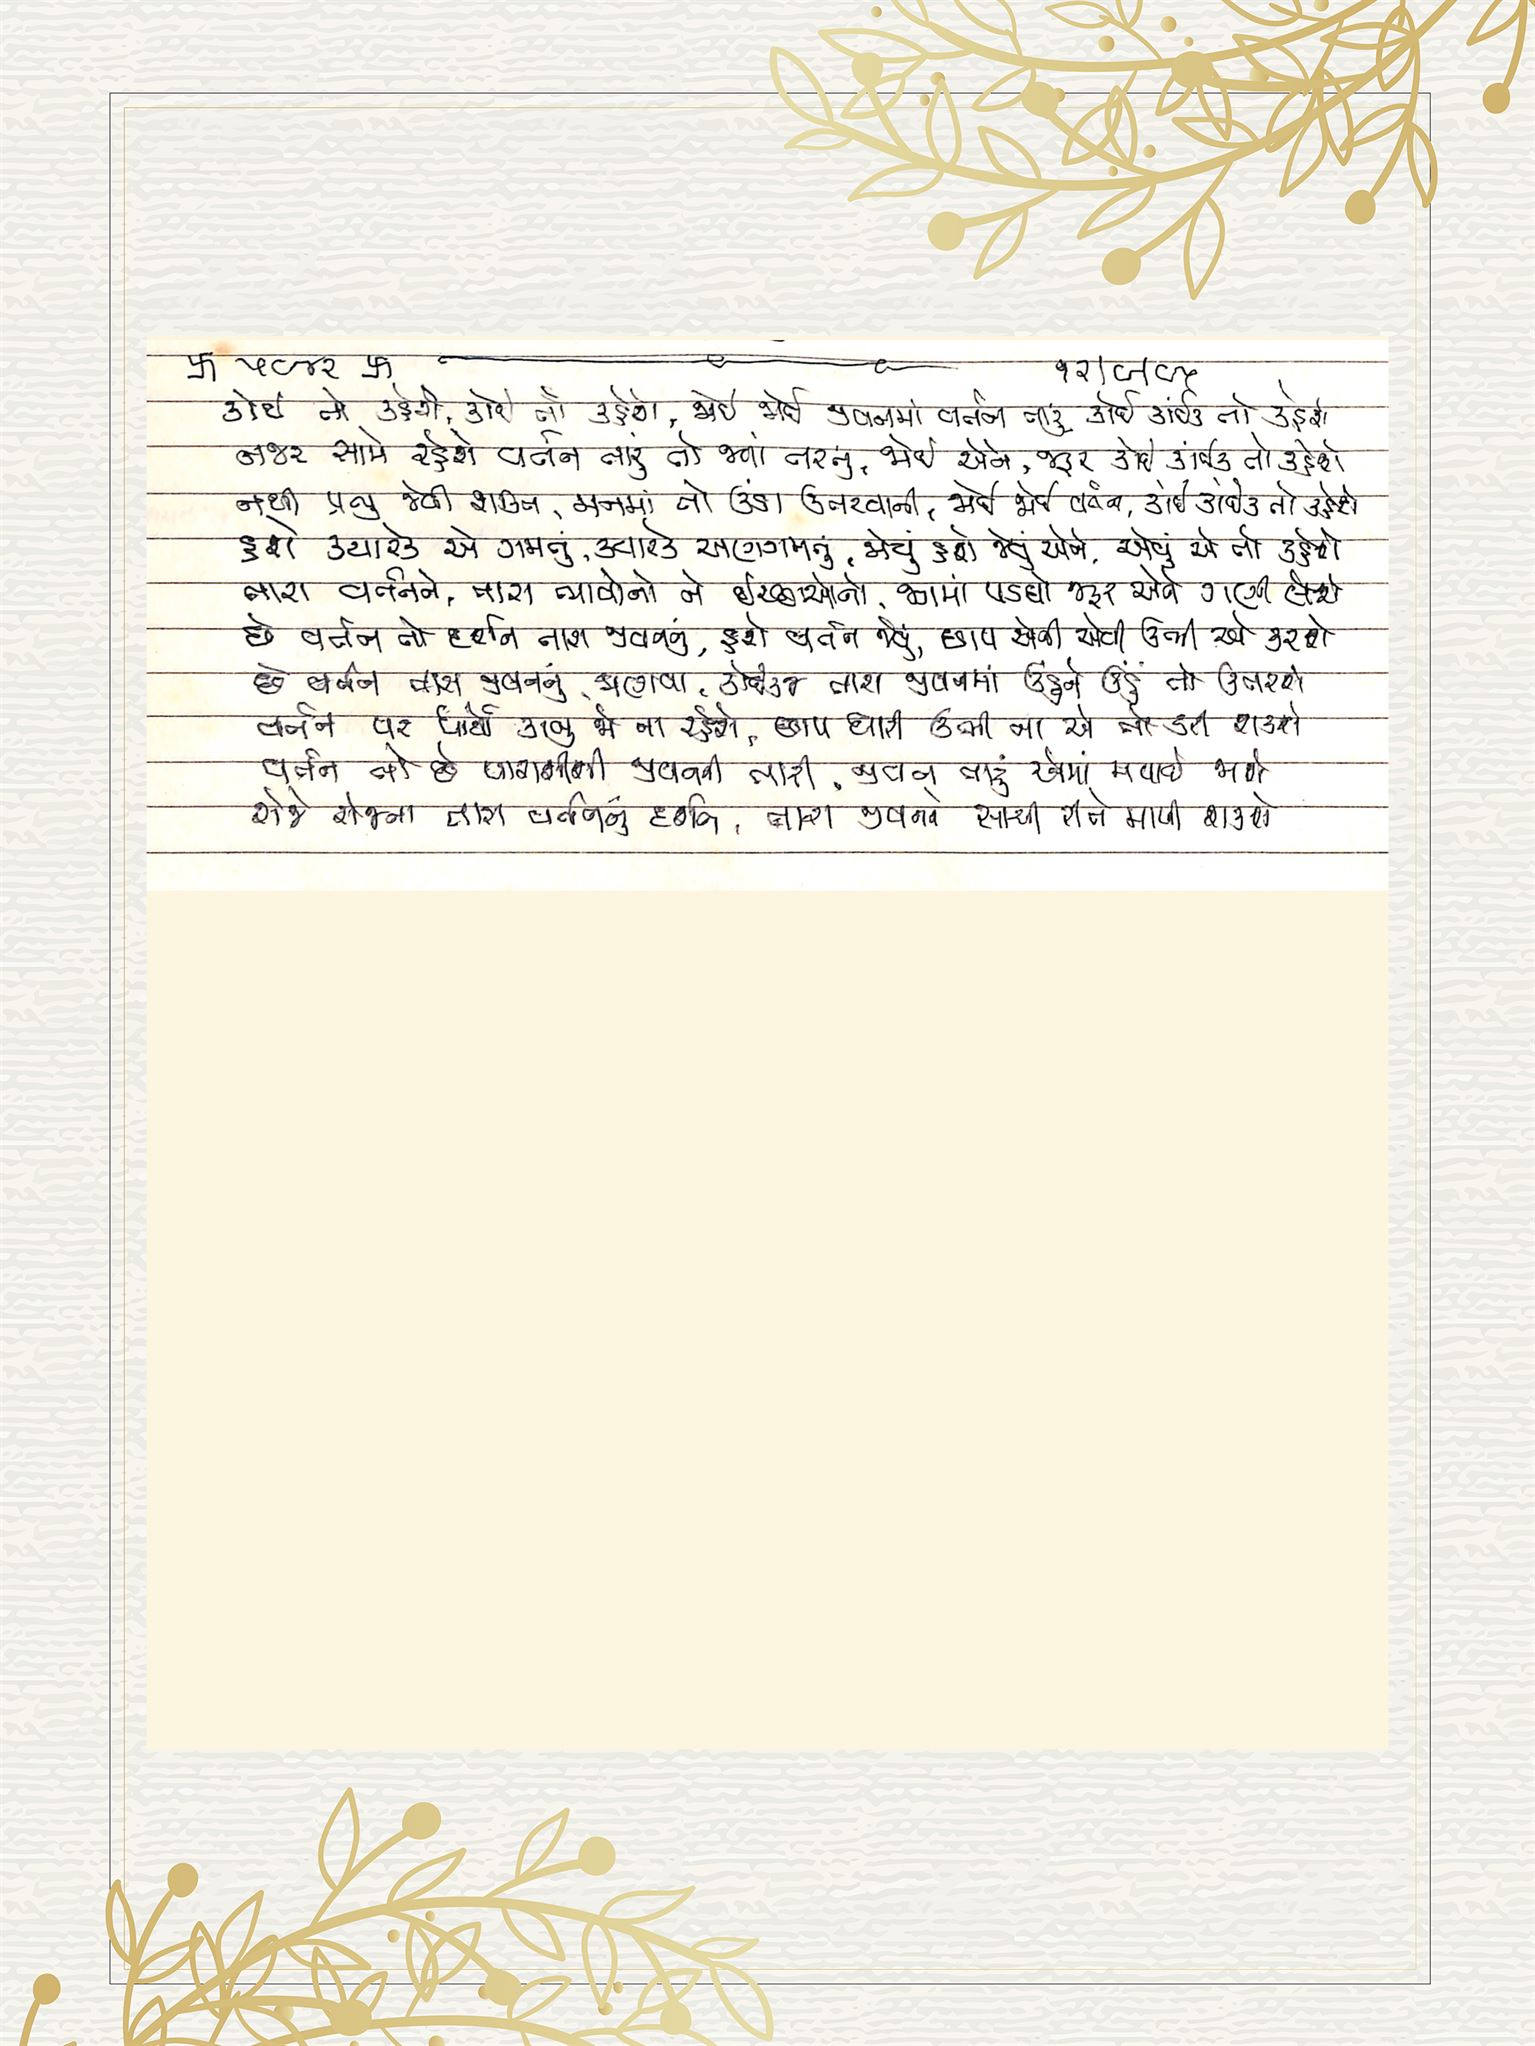 卐 ૫૯૪૨ 卐 ૧૨/૯/૯૫
કોઈ તો કહેશે, કોઈ તો કહેશે, જોઈ જોઈ જીવનમાં વર્તન તારૂં કોઈ કાંઈક તો કહેશે
નજર સામે રહેશે વર્તન તારૂં તો જ્યાં તરતું, જોઈ એને, જરૂર કોઈ કાંઈક તો કહેશે
નથી પ્રભુ જેવી શક્તિ, મનમાં તો ઉંડા ઉતરવાની, જોઈ જોઈ વર્તન, કોઈ કાંઈક તો કહેશે
હશે ક્યારેક એ ગમતું, ક્યારેક અણગમતું, જોયું હશે જેવું એને, એવું એ તો કહેશે
તારા વર્તનને, તારા ભાવોનો ને ઈચ્છાઓનો, જગમાં પડઘો જરૂર એને ગણી લેશે
છે વર્તન તો દર્શન તારા જીવનનું, હશે વર્તન જેવું, છાપ એની એવી ઉભી એ કરશે
છે વર્તન તારા જીવનનું જાણવા, કોઈક જ તારા જીવનમાં ઉંડું ને ઉંડું તો ઉતરશે
વર્તન પર કાબુ જો ના રહેશે, છાપ ધારી ઉભી ના એ તો કરી શકશે
વર્તન તો છે પારાશીશી જીવનની તારી, જીવન તારૂં એમાં મપાઈ જાશે
રોજે રોજના તારા વર્તનનું દર્શન, તારા જીવનને સાચી રીતે માપી શકશે